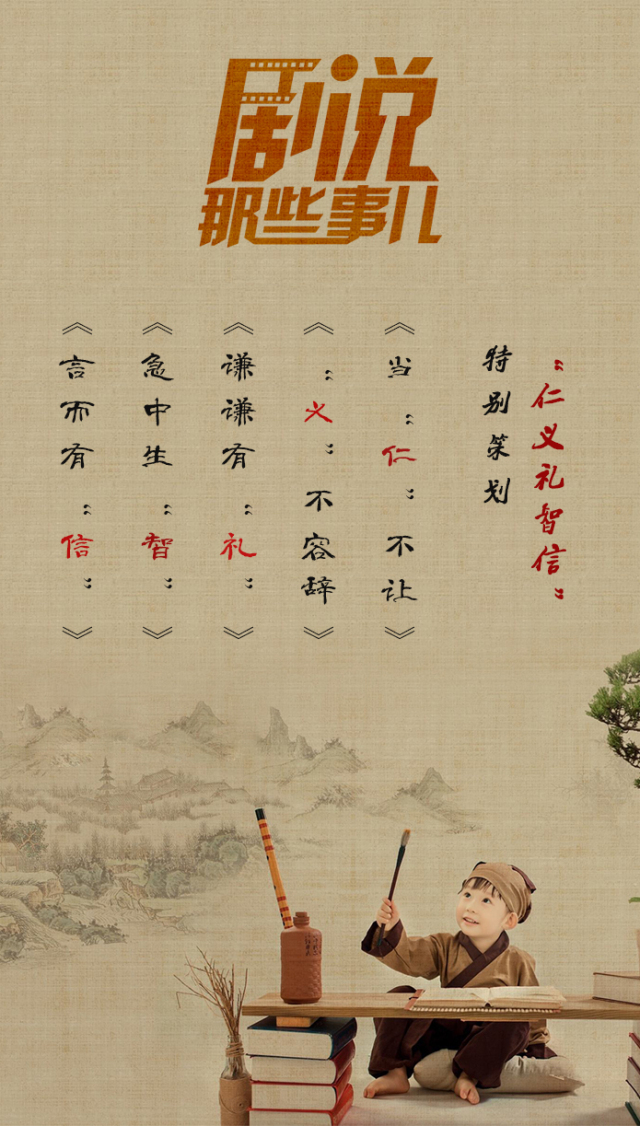 剧说
那些事儿
“仁义礼智信”
特别策划
《当“仁”不让》
《“义”不容辞》
《谦谦有“礼”》
《急中生“智”》
《言而有“信”》